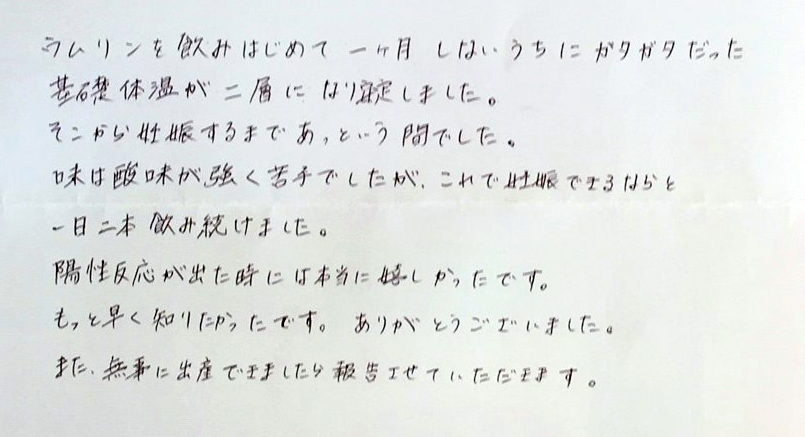 ラムリンを飲みはじめて一ヶ月しないうちにガタガタだった
基礎体温が二層になり安定しました。
そこから妊娠するまであっという間でした。
味は酸味が強く苦手でしたが、これで妊娠できるならと
一日二本飲み続けました。
陽性反応が出た時には本当に嬉しかったです。
もっと早く知りたかったです。ありがとうございました。
また、無事に出産できましたら報告させていただきます。